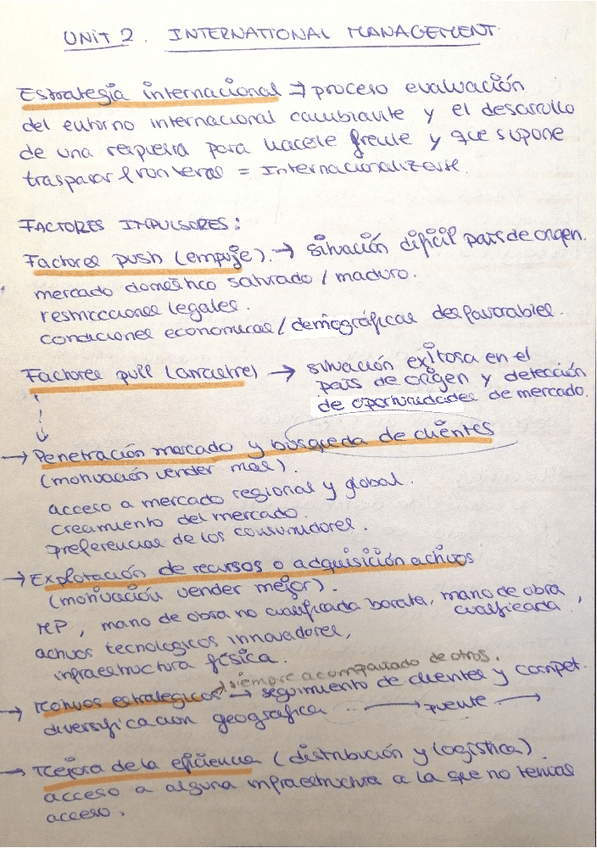 UNIT 2. INTERNATIONAL MANAGEMENT.
Estrategia internacional → proceso evaluación
del entorno internacional cambiante y el desarrollo
de una respuesta para hacerle frente y que supone
traspasar fronteras = Internacionalizarse.
FACTORES IMPULSORES:
Factores push (empuje). → situación difícil país de origen.
mercado doméstico saturado / maduro.
restricciones legales.
condiciones económicas / demográficas desfavorables.
Factores pull (arrastre) → situación exitosa en el
país de origen y detección
de oportunidades de mercado.
→ Penetración mercado y búsqueda de clientes
(motivación vender más).
acceso a mercado regional y global.
crecimiento del mercado.
preferencias de los consumidores.
→ Explotación de recursos o adquisición activos
(motivación vender mejor).
MP, mano de obra no cualificada barata, mano de obra cualificada,
activos tecnológicos innovadores,
infraestructura física.
siempre acompañado de otros.
→ Motivos estratégicos → seguimiento de clientes y compet.
diversificación geográfica → puente →
→ Mejora de la eficiencia (distribución y logística)
acceso a alguna infraestructura a la que no tenías
acceso.